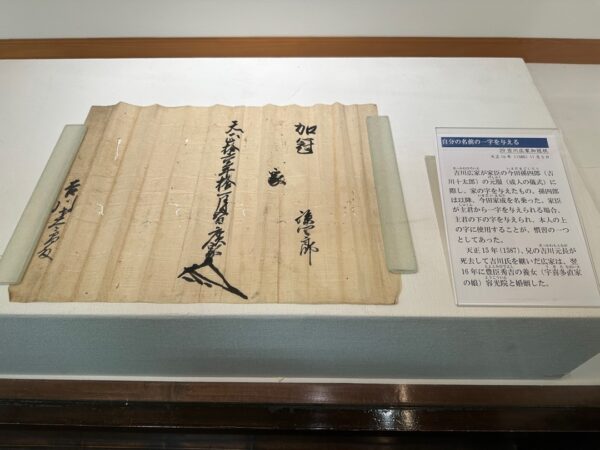 加冠
家
自分の名前の一字を与える
吉川広家加冠状
吉川広家が家臣の今田孫四郎（吉
川十太郎）の元服（成人の儀式）に
際し、家の字を与えたもの。孫四郎
は以降、今田家成を名乗った。家臣
が主君から一字を与えられる場合、
主君の下の字を与えられ、本人の上
の字に使用することが、慣習の一つ
としてあった。
天正15年（1587）、兄の吉川元長が
死去して吉川氏を継いだ広家は、翌
16年に豊臣秀吉の養女（宇喜多直家
の娘）容光院と婚姻した。